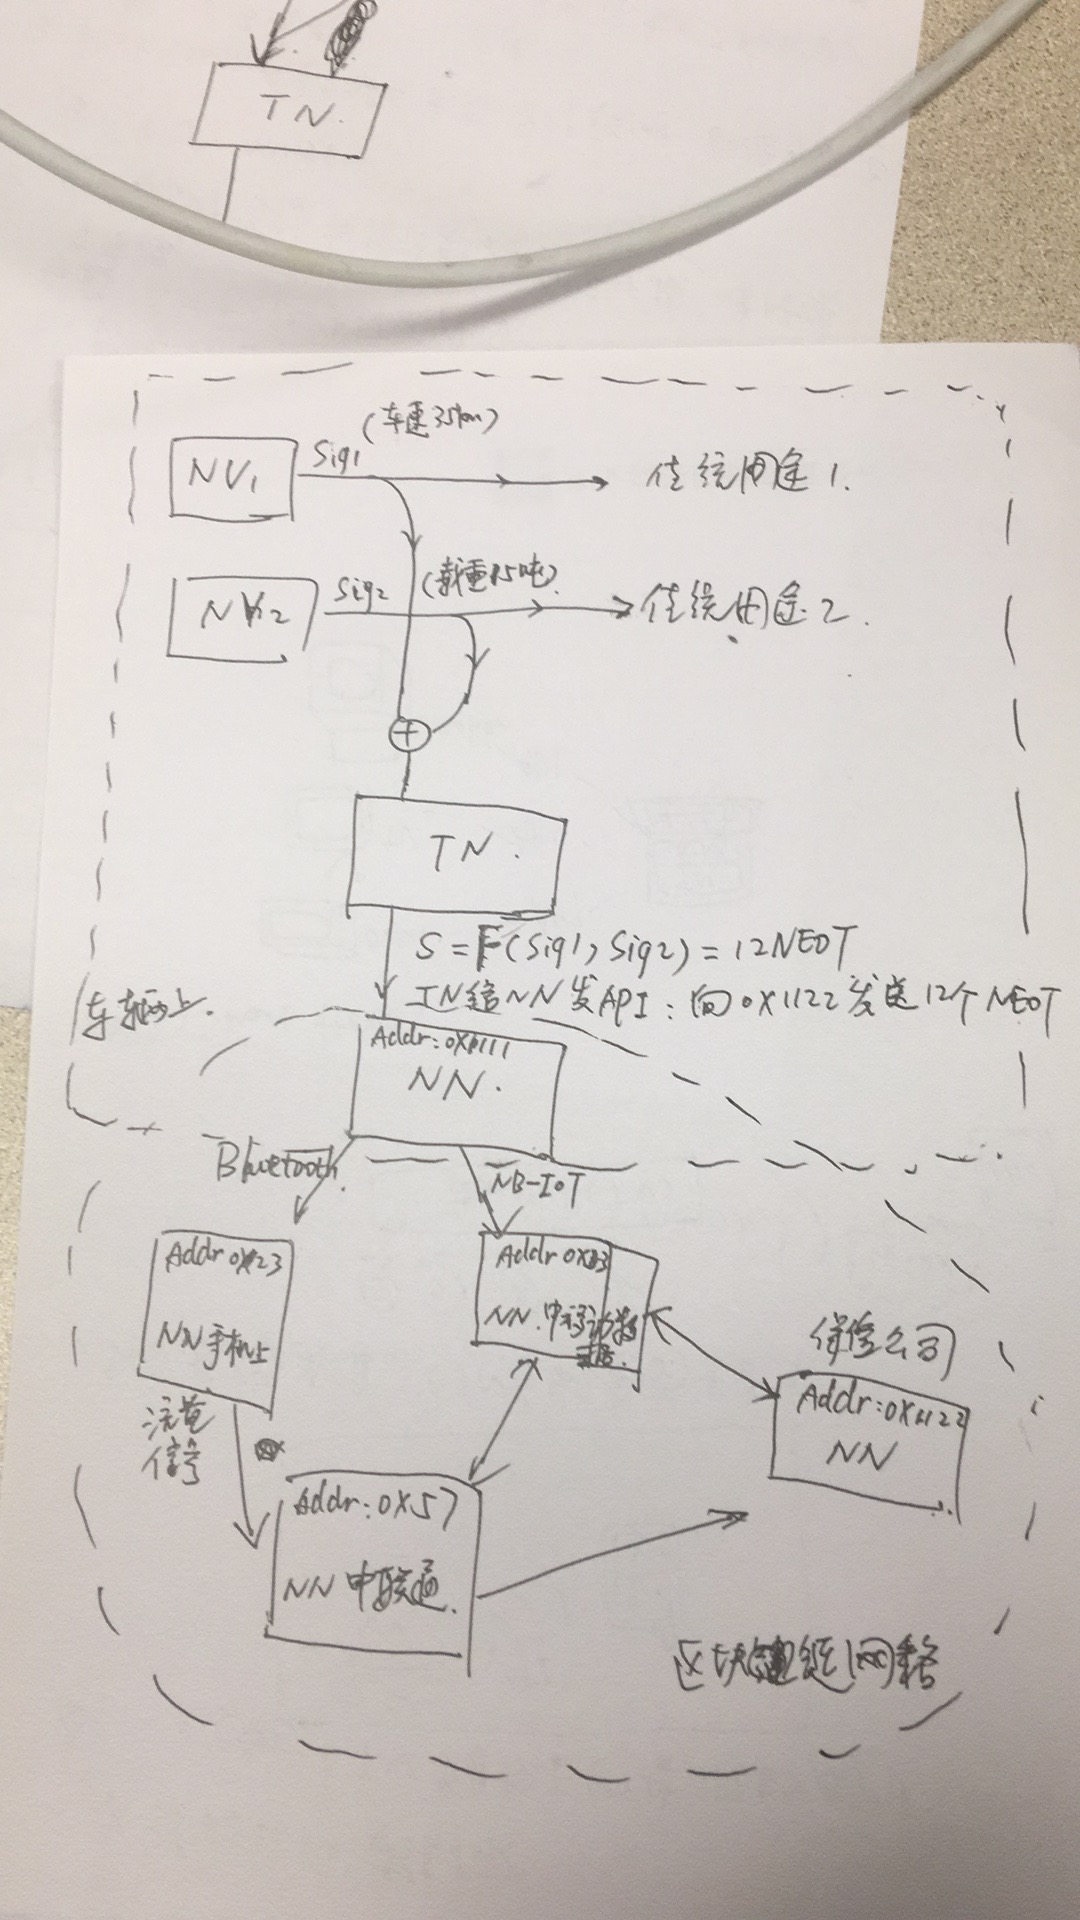 TN.
(车速35km)
NV1
Sig1
传统用途1.
(载重15吨)
Sig2
NV2
传统用途2.
TN.
S=F(Sig1,Sig2)=12NEOT
TN给NN发API:向0X1122发送12个NEOT
车辆上.
Addr:0X1111
NN.
Bluetooth.
NB-IoT
Addr 0X23
NN手机上
Addr 0X33
NN.中移动
Addr:0X1122
NN
公司
信号
Addr:0X57
NN 中联通.
区块链网络